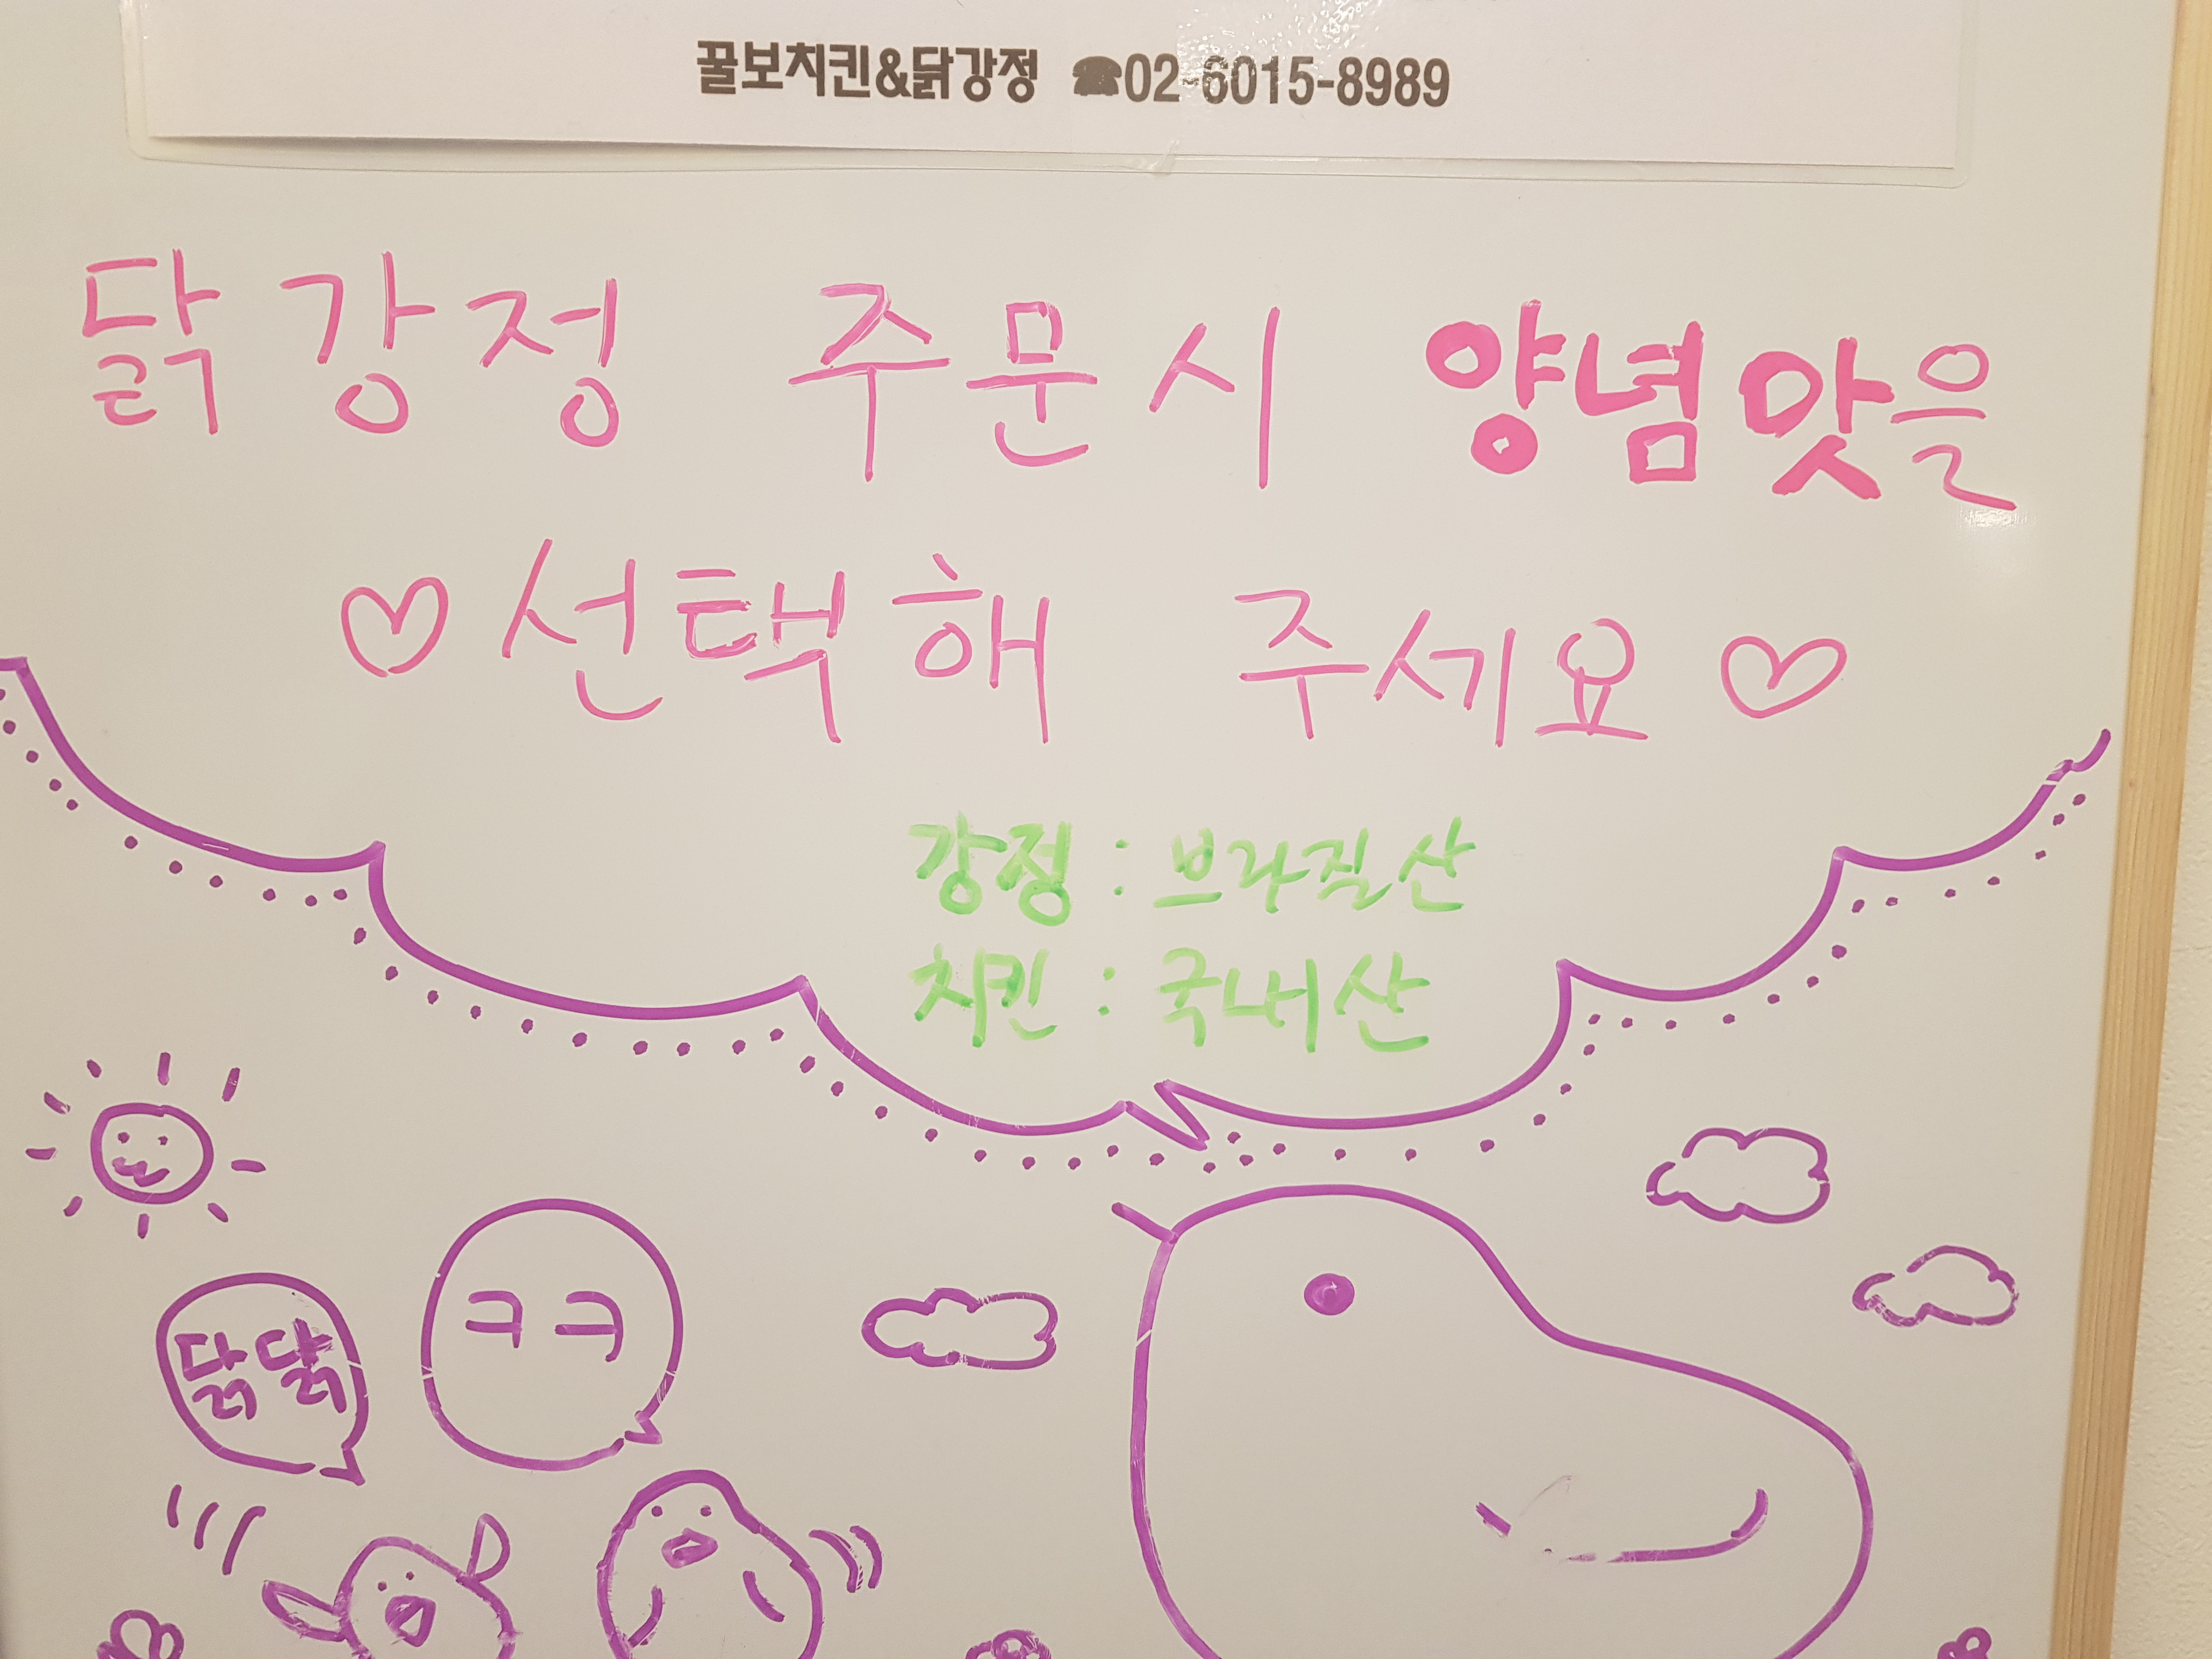 꿀보치킨&닭강정 ☎02-6015-8989
닭강정 주문시 양념맛을
♡선택해 주세요♡
강정 : 브라질산
치킨 : 국내산
ㅋㅋ
닭닭